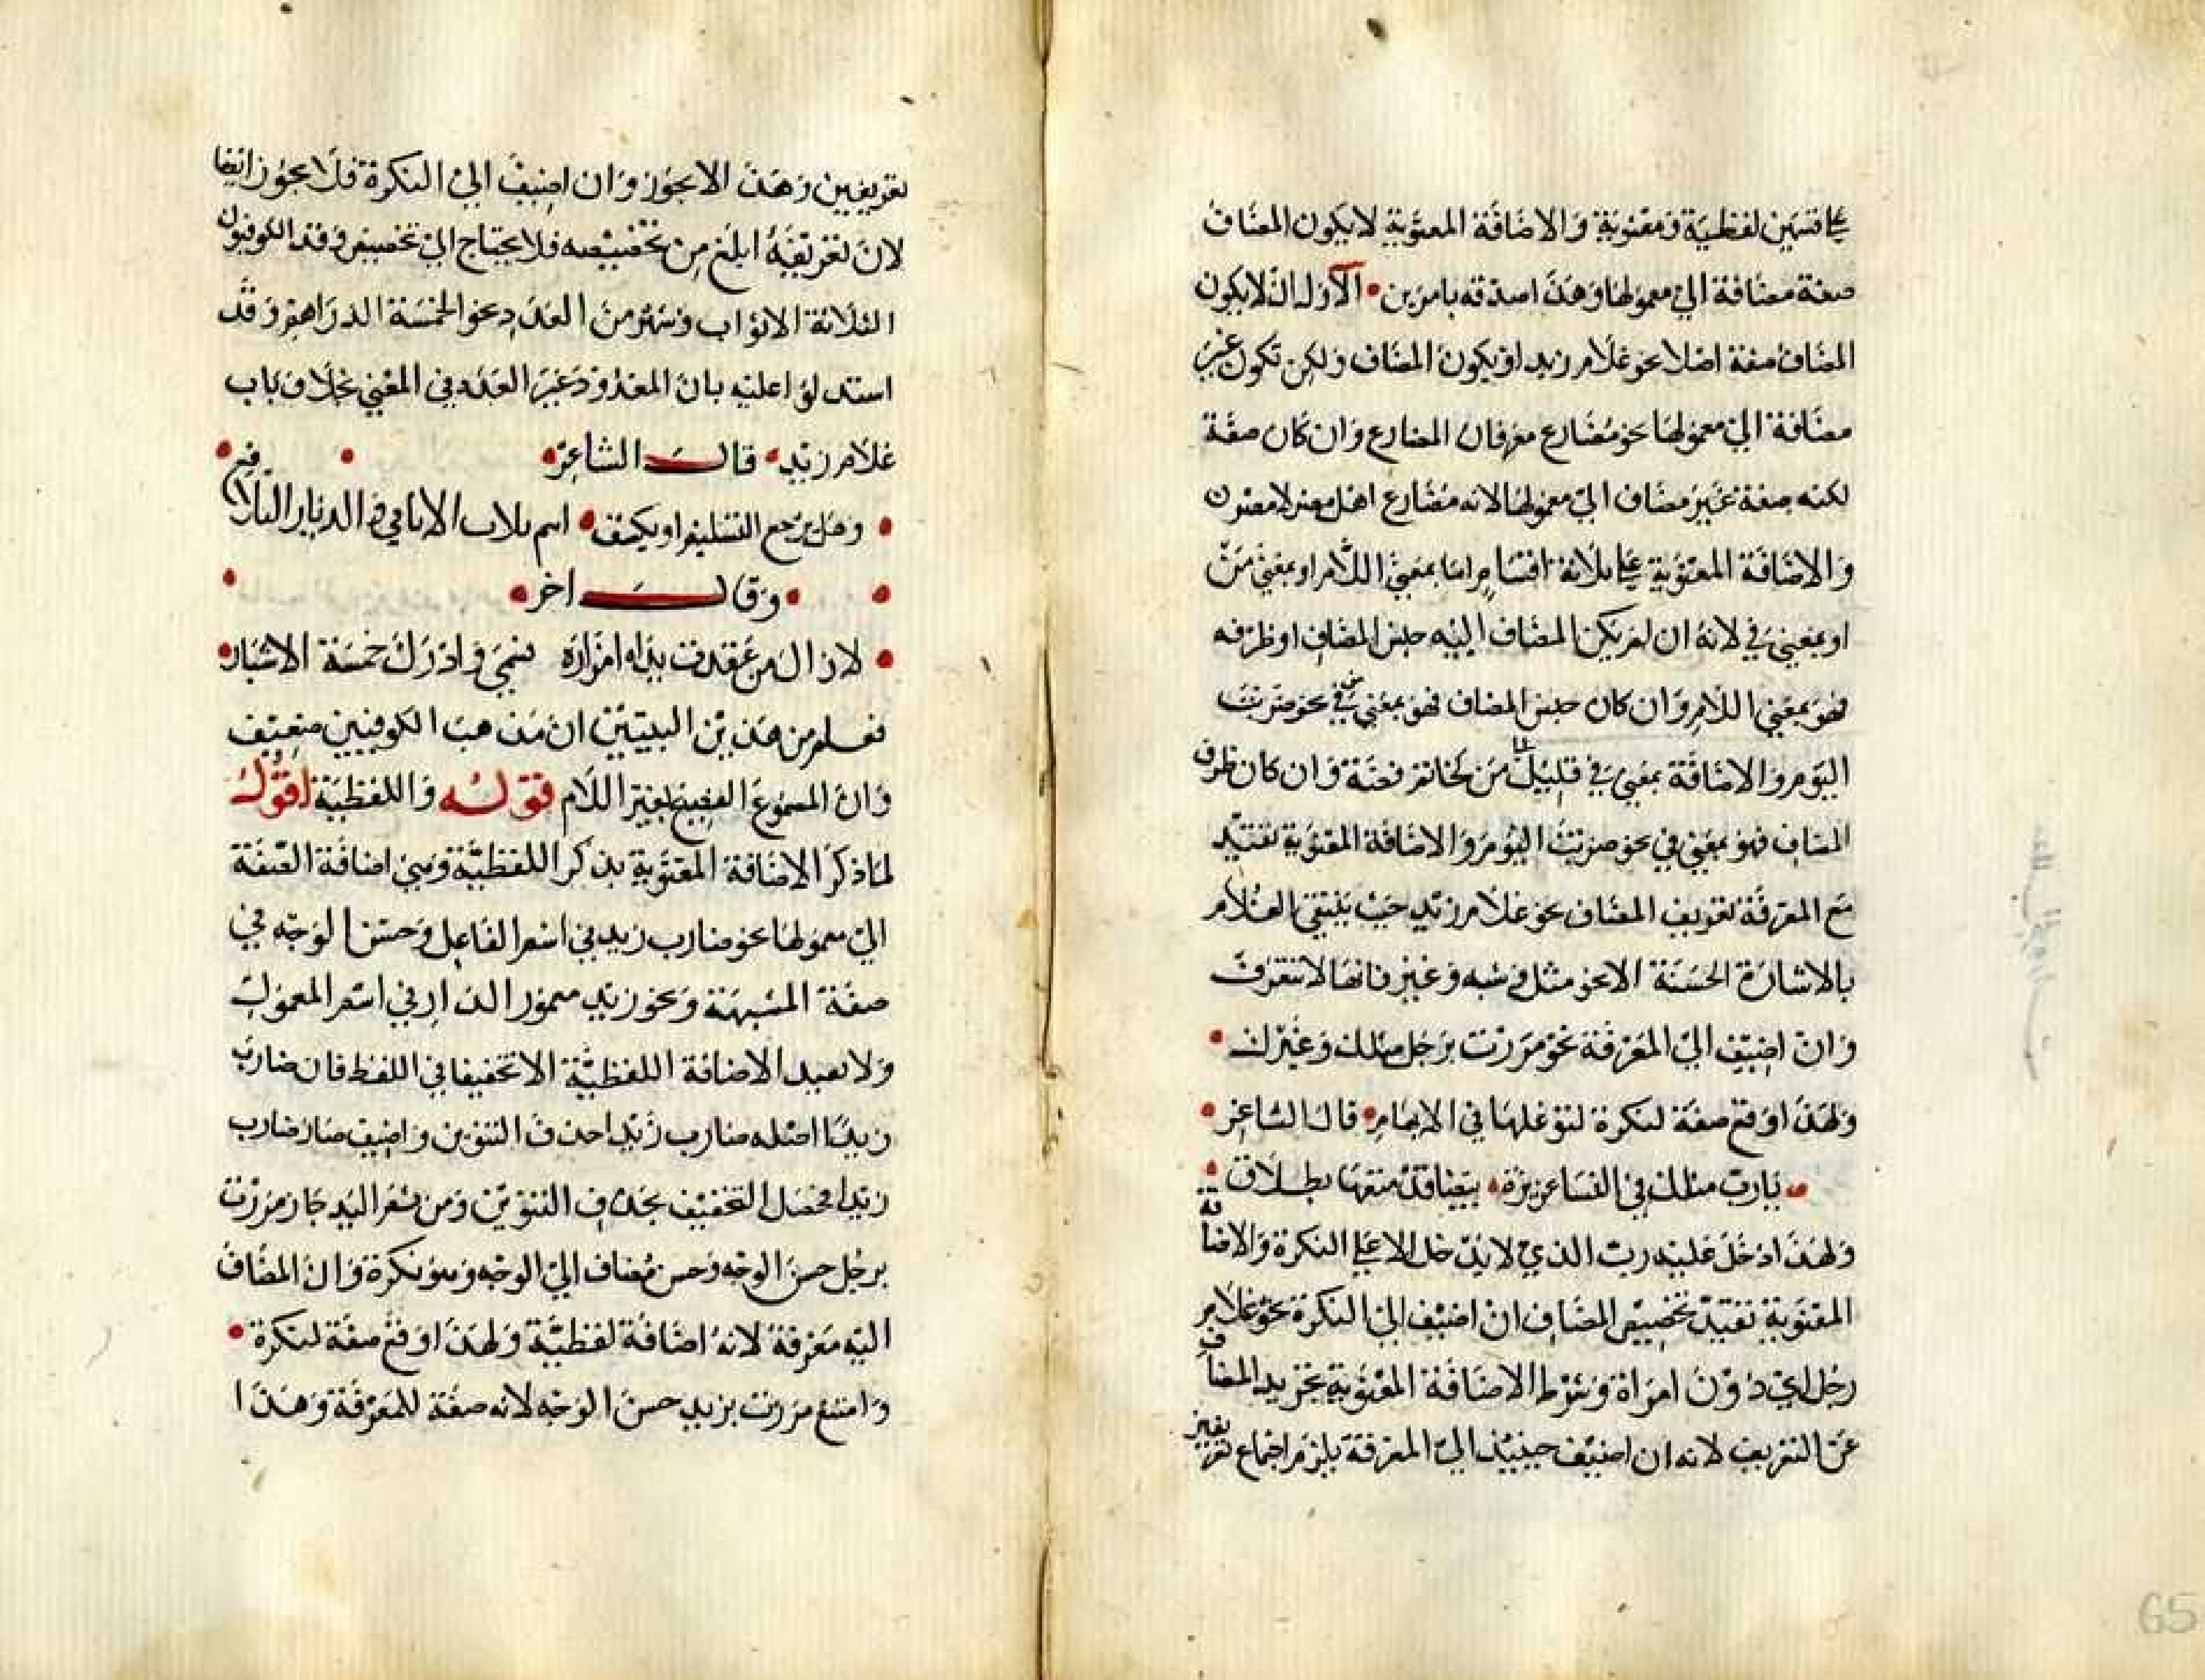 علي قسمين لفظية ومعنوية والاضافة المعنوية لا يكون المضاف
صفة مضافة الي معمولها وهذا صدقه بامرين الاول ان لا يكون
المضاف صفة اصلا نحو غلام زيد او يكون المضاف ولكن تكون غير
مضافة الي معمولها نحو مضارع فان المضارع وان كان صفة
لكنه صفة غير مضاف الي معمولها لانه مضارع اهل مصر لا مصر
والاضافة المعنوية علي ثلاثة اقسام اما بمعني اللام او بمعني من
او بمعني في لانه ان لم يكن المضاف اليه جنس المضاف او ظرفه
فهو بمعني اللام وان كان جنس المضاف فهو بمعني في نحو ضربت
اليوم والاضافة بمعني في قليل من كخاتم فضة وان كان ظرف
المضاف فهو بمعني في نحو ضربت اليوم والاضافة المعنوية تفيد
مع المعرفة تعريف المضاف نحو غلام زيد حيث الغلام
بالاشارة الحسنة الا نحو مثل وشبه وغير فانها لا تتعرف
وان اضيف الي المعرفة نحو مررت برجل مثلك وغيرك
ولهذا وقع صفة لنكرة لتوغلها في الابهام قال الشاعر
يا رب مثلك في النسا عزيزة بيضا قد متعتها بطلاق
ولهذا دخل عليه رب الذي لا يدخل الا علي النكرة والاضافة
المعنوية تفيد تخصيص المضاف ان اضيف الي النكرة نحو غلام
رجل اي دون امراة وشرط الاضافة المعنوية تجريد المضاف
عن التعريف لانه ان اضيف حينيذ الي المعرفة يلزم اجتماع
تعريفين وهذا لا يجوز وان اضيف الي النكرة فلا يجوز ايضا
لان تعريفه ابلغ من تخصيصه فلا يحتاج الي تخصيص الكوفيون
الثلاثة الاثواب وشبهه من العدد نحو الخمسة الدراهم وقد
استدلوا عليه بان المعدود غير العدد في المعني بخلاف باب
غلام زيد قال الشاعر
وهل يرجع التسليم او يكشف ثلاث الاثافي والديار البلاقع
وقال اخر
لا زال من عقدت يداه ازاره فسمي وادرك خمسة الاشبار
فعلم من هذين البيتين ان مذهب الكوفيين ضعيف
وان المسموع الفصيح بغير اللام قوله واللفظية اقول
لما ذكر الاضافة المعنوية يذكر اللفظية وهي اضافة الصفة
الي معمولها نحو ضارب زيد في اسم الفاعل وحسن الوجه في
صفة المشبهة ونحو زيد معمور الدار في اسم المعمول
ولا تفيد الاضافة اللفظية الا تخفيفا في اللفظ فان ضارب
زيدا اصله ضارب زيدا حذف التنوين واضيف صار ضارب
زيد فحصل التخفيف بحذف التنوين ومن ثم جاز مررت
برجل حسن الوجه وحسن مضاف الي الوجه وهو نكرة وان المضاف
اليه معرفة لانه اضافة لفظية ولهذا وقع صفة لنكرة
وامتنع مررت بزيد حسن الوجه لانه صفة للمعرفة وهذا
65